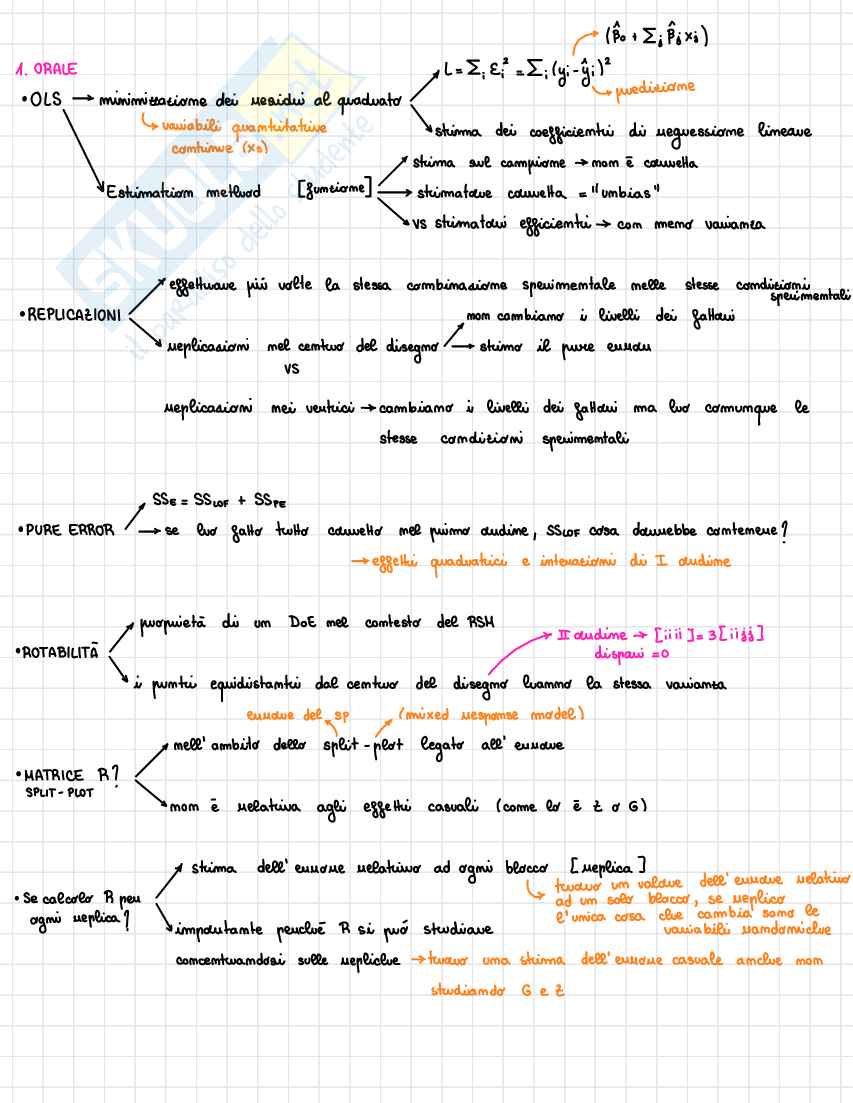 (β̂₀ + Σⱼ β̂ⱼ xⱼ)
1. ORALE
L = Σᵢ εᵢ² = Σᵢ (yᵢ - ŷᵢ)²
predizione
• OLS → minimizzazione dei residui al quadrato
variabili quantitative
continue (xs)
stima dei coefficienti di regressione lineare
Estimation method [funzione]
stima sul campione → non è corretta
stimatore corretta = "unbias"
vs stimatori efficienti → con meno varianza
SKUOLA.net
il paradiso dello studente
effettuare più volte la stessa combinazione sperimentale nelle stesse condizioni
sperimentali
• REPLICAZIONI
non cambiamo i livelli dei fattori
replicazioni nel centro del disegno → stimo il pure error
VS
replicazioni nei vertici → cambiamo i livelli dei fattori ma ho comunque le
stesse condizioni sperimentali
SSE = SSLOF + SSPE
• PURE ERROR → se ho fatto tutto corretto nel primo ordine, SSLOF cosa dovrebbe contenere?
→ effetti quadratici e interazioni di I ordine
proprietà di un DoE nel contesto del RSM
II ordine → [iiii] = 3[iijj]
dispari = 0
• ROTABILITÀ
i punti equidistanti dal centro del disegno hanno la stessa varianza
errore del sp (mixed response model)
nell'ambito dello split-plot legato all'errore
• MATRICE R?
SPLIT-PLOT
non è relativa agli effetti casuali (come lo è Z o G)
stima dell'errore relativo ad ogni blocco [replica]
trovo un valore dell'errore relativo
ad un solo blocco, se replico
l'unica cosa che cambia sono le
variabili randomiche
• Se calcolo R per
ogni replica?
importante perchè R si può studiare
concentrandosi sulle repliche → trovo una stima dell'errore casuale anche non
studiando G e Z